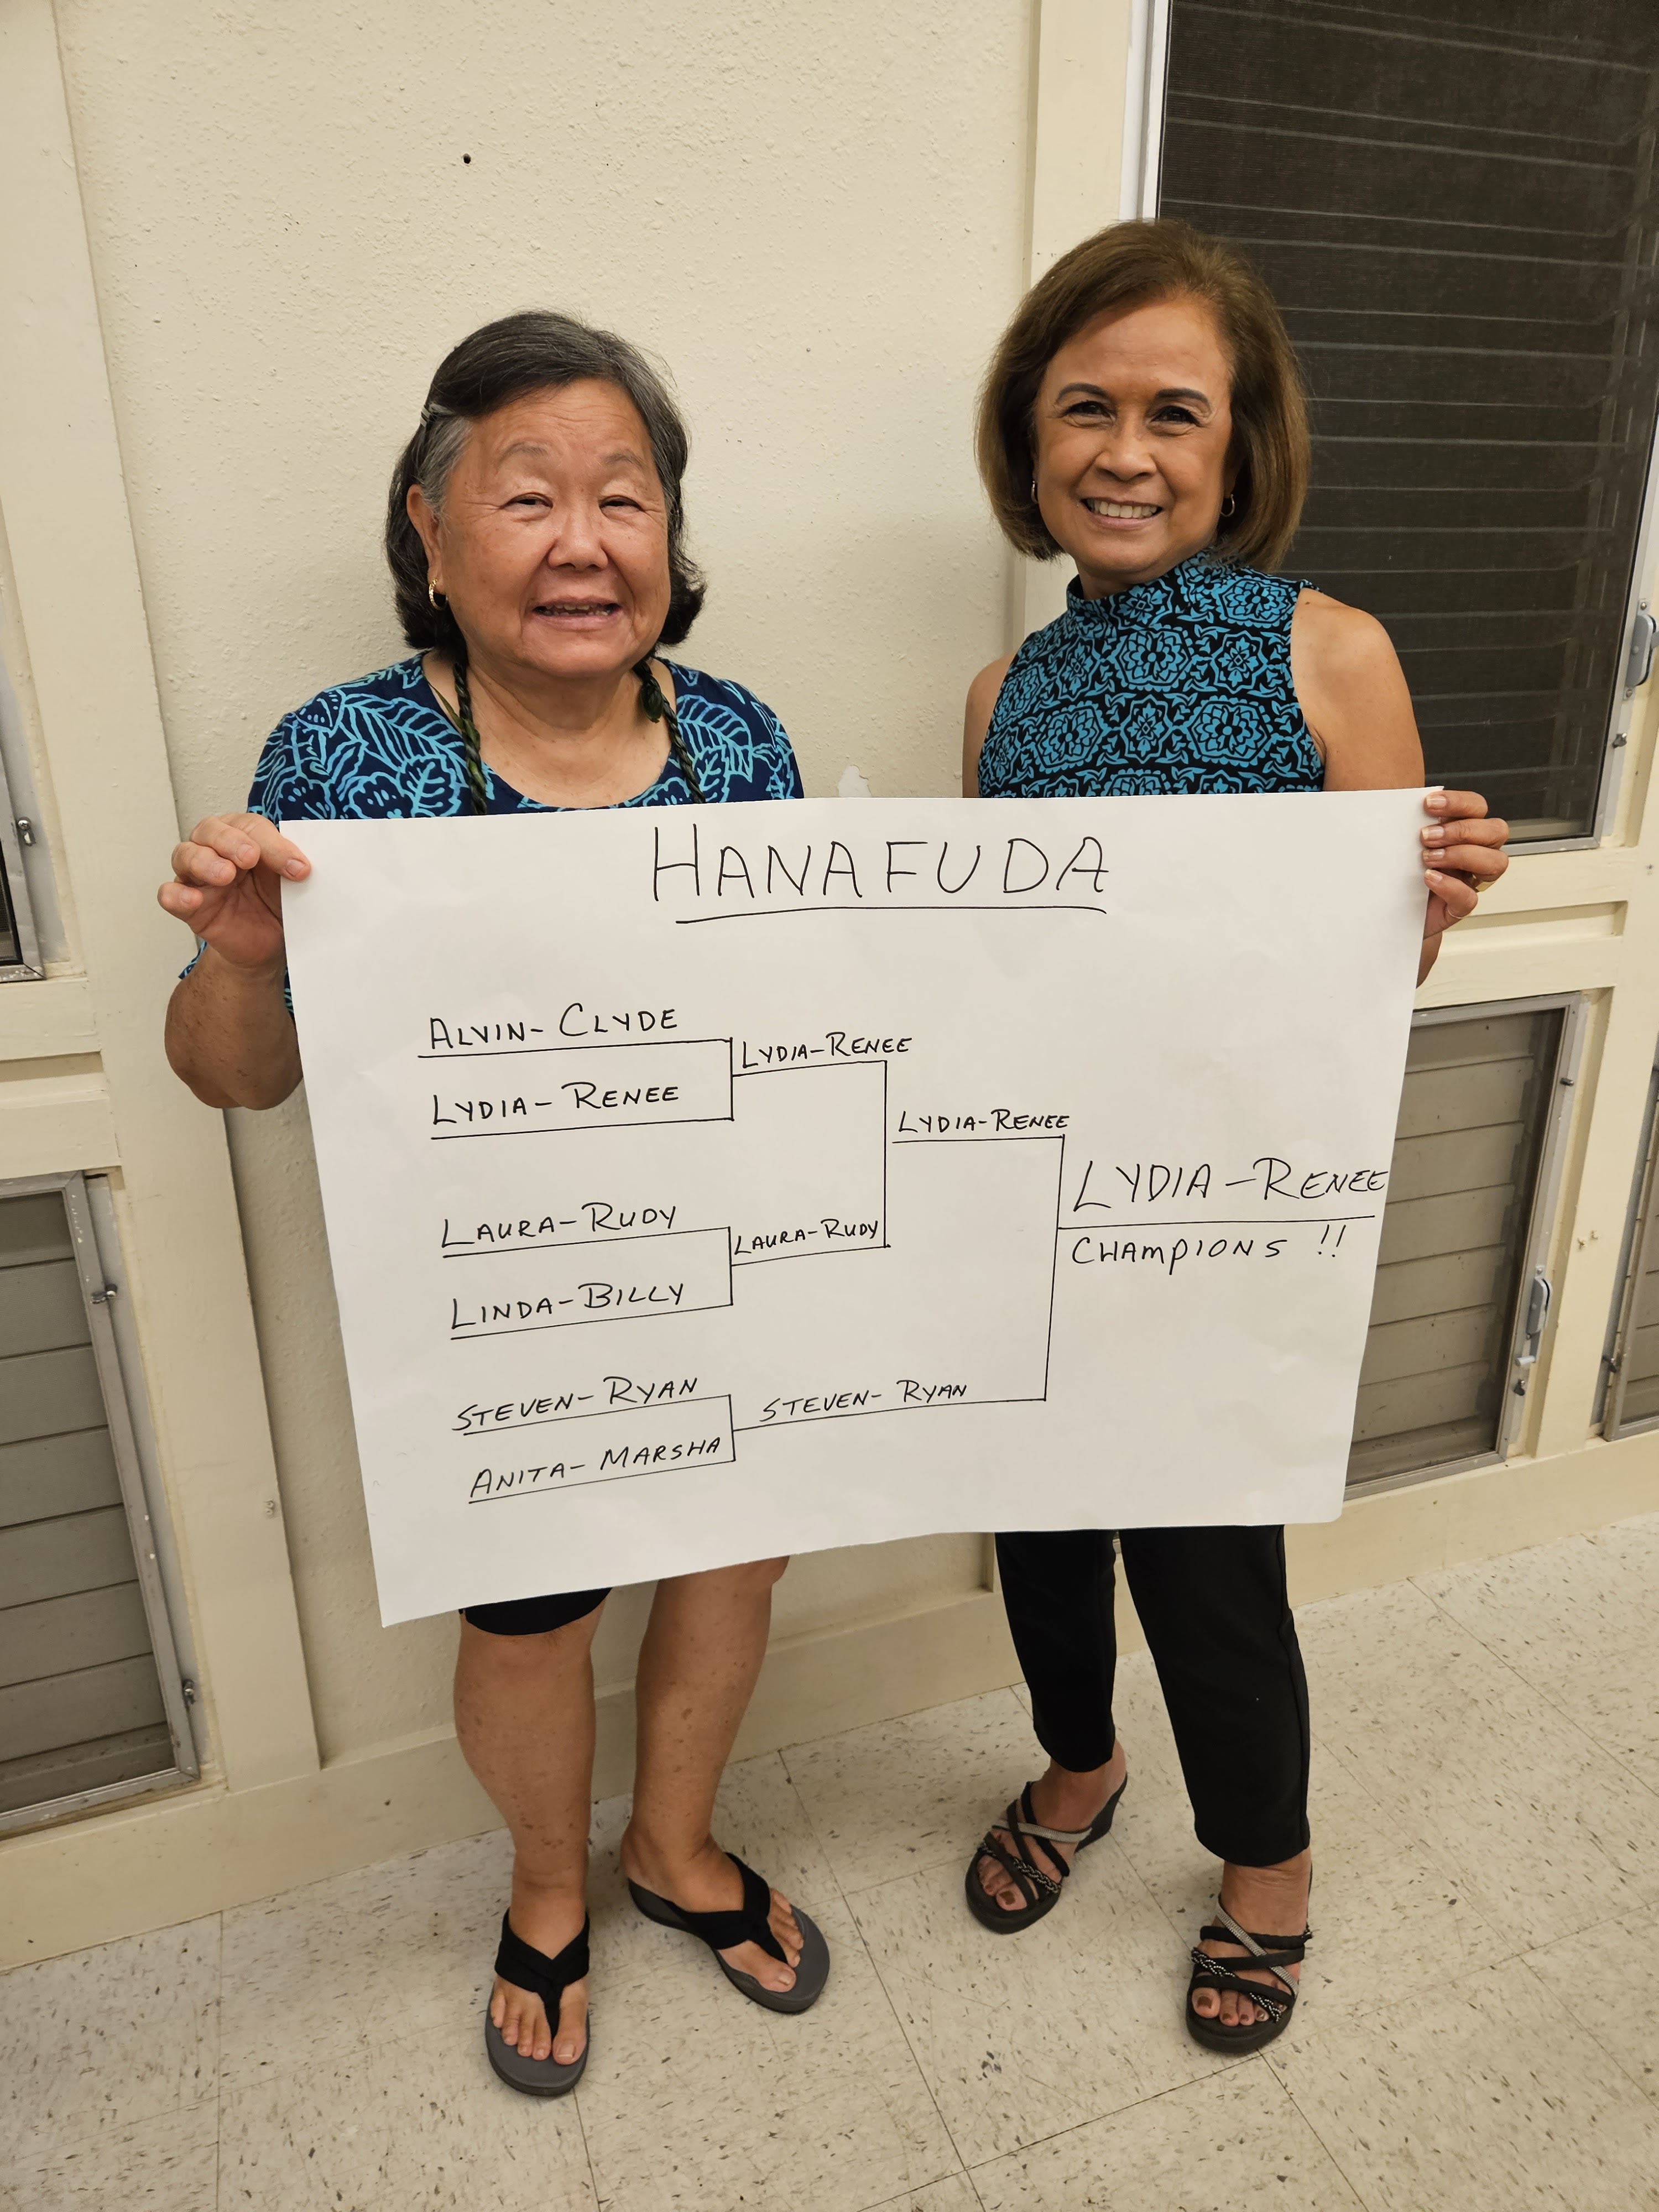 HANAFUDA
ALVIN-CLYDE
LYDIA-RENEE
LYDIA-RENEE
LYDIA-RENEE
LYDIA-RENEE
CHAMPIONS !!
LAURA-RUDY
LAURA-RUDY
LINDA-BILLY
STEVEN-RYAN
STEVEN-RYAN
ANITA-MARSHA